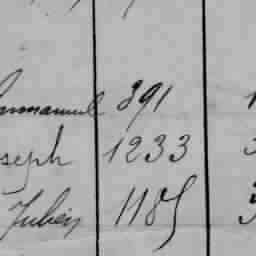 Emmanuel 391
Joseph 1233
Julien 1185